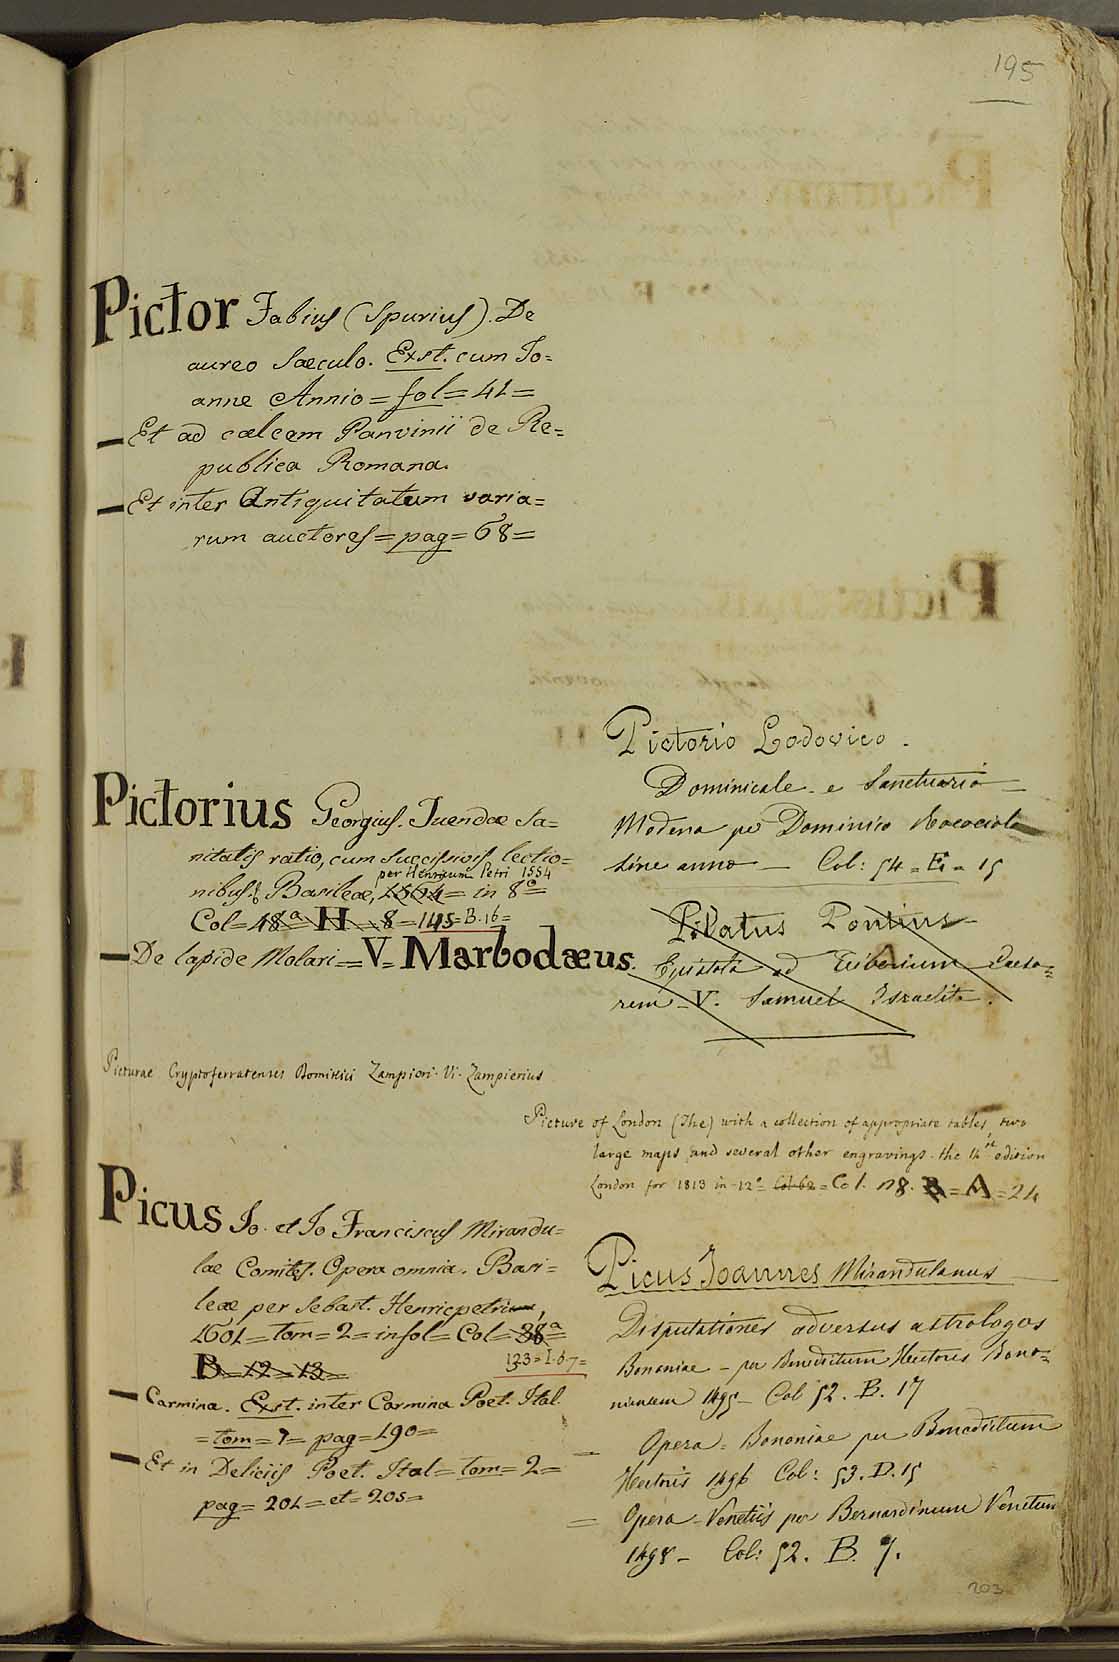 195
Pictor Fabius (Spurius). De
aureo sæculo. Exst. cum Jo=
anne Annio = fol = 41 =
— Et ad calcem Panvinii de Re=
publica Romana.
— Et inter Antiquitatum varia=
rum auctores = pag = 68 =
Pictorius Georgius. Tuendæ Sa=
nitatis ratio, cum succissivis lectio=
per Henricum Petri 1554
nibus. Basileæ, 1564 = in 8º =
Col = 48ª H = 8 = 145 = B. 16 =
— De lapide Molari = V = Marbodæus.
Picturae Cryptoferratenses Dominici Zampiori. Vi. Zampierius
Picus Jo. et Jo Franciscus Mirandu=
læ Comites. Opera omnia. Basi=
leæ per Sebast. Henricpetrium,
1601 = tom = 2 = in fol = Col = 38ª =
B = 12 = 13 =
123 = I. 6. 7 =
— Carmina. Exst. inter Carmina Poet. Ital.
= tom = 7 = pag = 190 =
— Et in Deliciis Poet. Ital = tom = 2 =
pag = 201 = et = 205 =
Pictorio Lodovico.
Dominicale e Sanctuario —
Modena per Dominico Rococciola
sine anno — Col: 54 = E = 15
Pilatus Pontius
Epistola ad Tiberium Cæsa=
rem = V. Samuel Israelita.
Picture of London (The) with a collection of appropriate tables, two
large maps and several other engravings. the 14st edition
London for 1813 in 12º = Col 62 = Col. 178. B = A = 24
Picus Joannes Mirandulanus
Disputationes adversus astrologos
Bononiae — per Benedictum Hectoris Bono=
niensem 1495 — Col 52. B. 17
= Opera = Bononiae per Benedictum
Hectoris 1496 Col: 53. D. 15
= Opera — Venetiis per Bernardinum Venetum
1498 — Col: 52. B. 7.
203